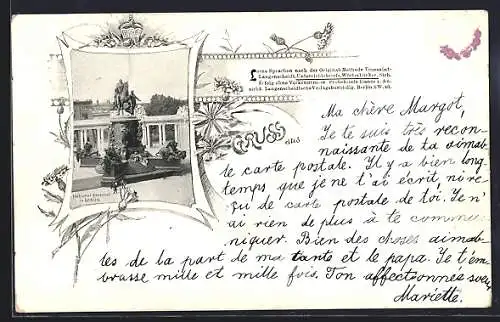 Lerne Sprachen nach der Original-Methode Toussaint-
Langenscheidt, Unterrichtsbriefe, Wörterbücher, Sich.
Erfolg ohne Vorkenntnisse
Langenscheidtsche Verlagsbuchhdlg. Berlin S.W. 46.
GRUSS aus
National-Denkmal
in Berlin.
Ma chère Margot,
Je te suis très recon-
naissante de ta aimab
le carte postale. Il y a bien long
temps que je ne t'ai écrit, nire
çui de carte postale de toi. Je n'
ai rien de plus à te commu
niquer. Bien des choses aimab-
les de la part de ma tante et le papa. Je t'em
brasse mille et mille fois. Ton affectionnée sœur
Mariette.